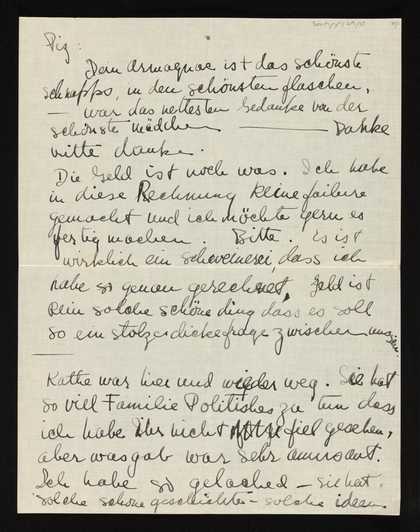 Pig:
Dein Armagnac ist das schönste
schnapps, in den schönsten flaschen,
— war das nettesten Gedanke von der
schönste mädchen ——— Danke
bitte danke.
Die Geld ist noch was. Ich habe
in diese Rechnung keine failure
gemacht und ich möchte gern es
fertig machen. Bitte. Es ist
wirklich ein schweinerei, dass ich
habe so genau gerechnet, Geld ist
kein solche schöne ding dass es soll
so ein stolze dicke frage zwischen uns
Kathe war hier und wieder weg. Sie hat
so viel Familie Politisches zu tun dass
ich habe ihr nicht viel gesehen,
aber was gab war sehr amusant.
Ich habe so gelached — sie hat
solche schöne geschichte — solche ideen